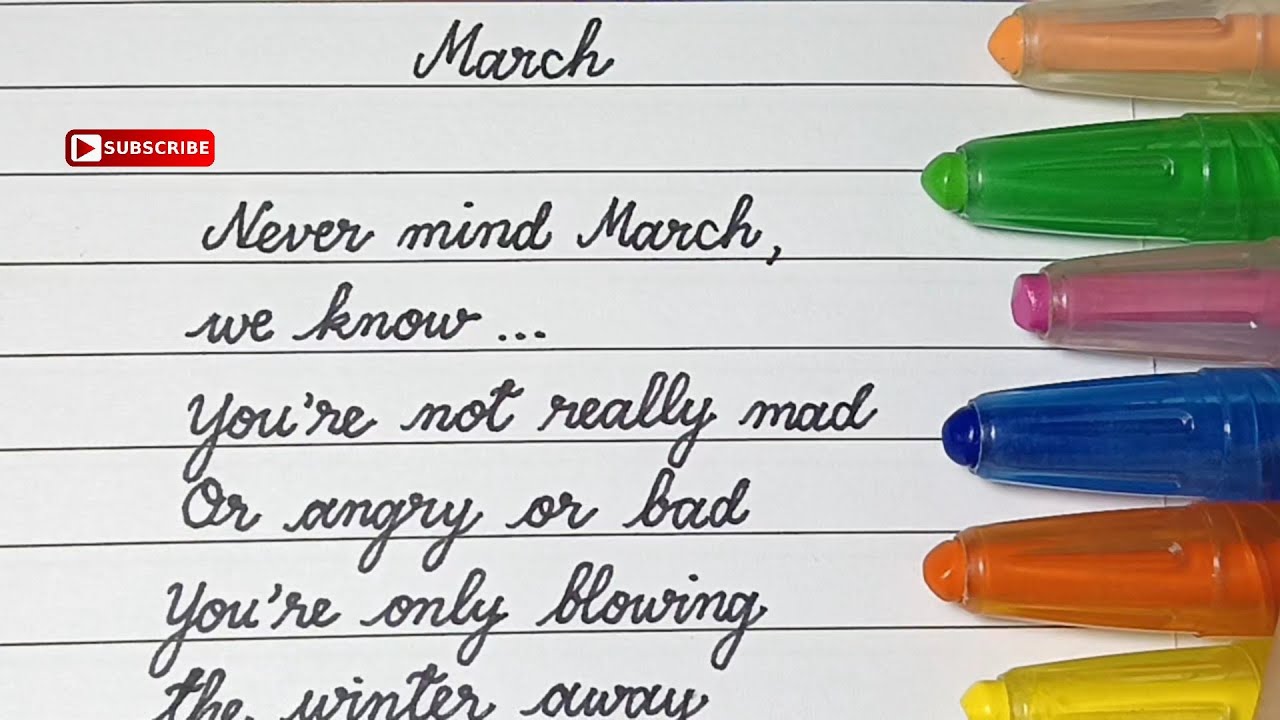 March
SUBSCRIBE
Never mind March,
we know...
You're not really mad
Or angry or bad
You're only blowing
the winter away